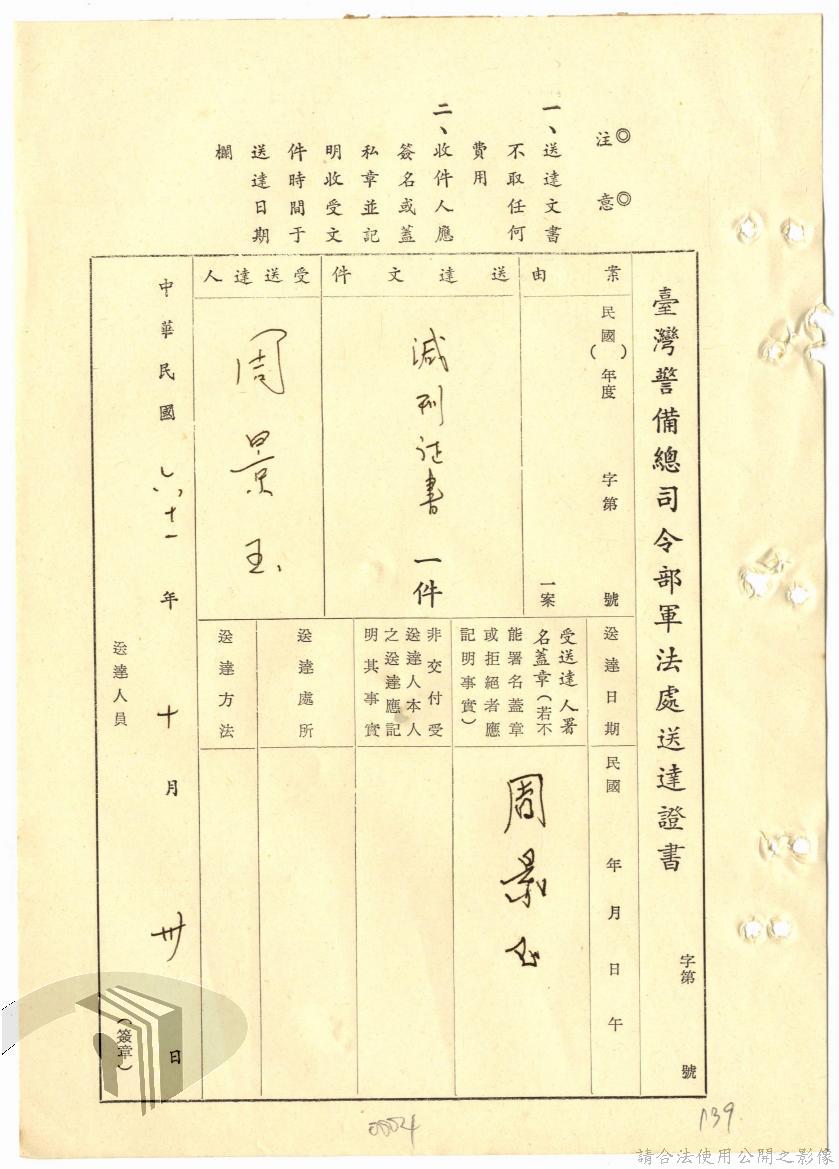 ◎注意◎
一、送達文書
不取任何
費用
二、收件人應
簽名或蓋
私章並記
明收受文
件時間于
送達日期
欄
臺灣警備總司令部軍法處送達證書
字第 號
案由
民國( )年度 字第 號
一案
送達文件
減刑证書 一件
受送達人
周景玉
送達日期
民國 年 月 日 午
受送達人署
名蓋章(若不
能署名蓋章
或拒絕者應
記明事實)
周景玉
非交付受
送達人本人
之送達應記
明其事實
送達處所
送達方法
中華民國 六十一 年 十 月 卅 日
送達人員 (簽章)
0004
139
請合法使用公開之影像